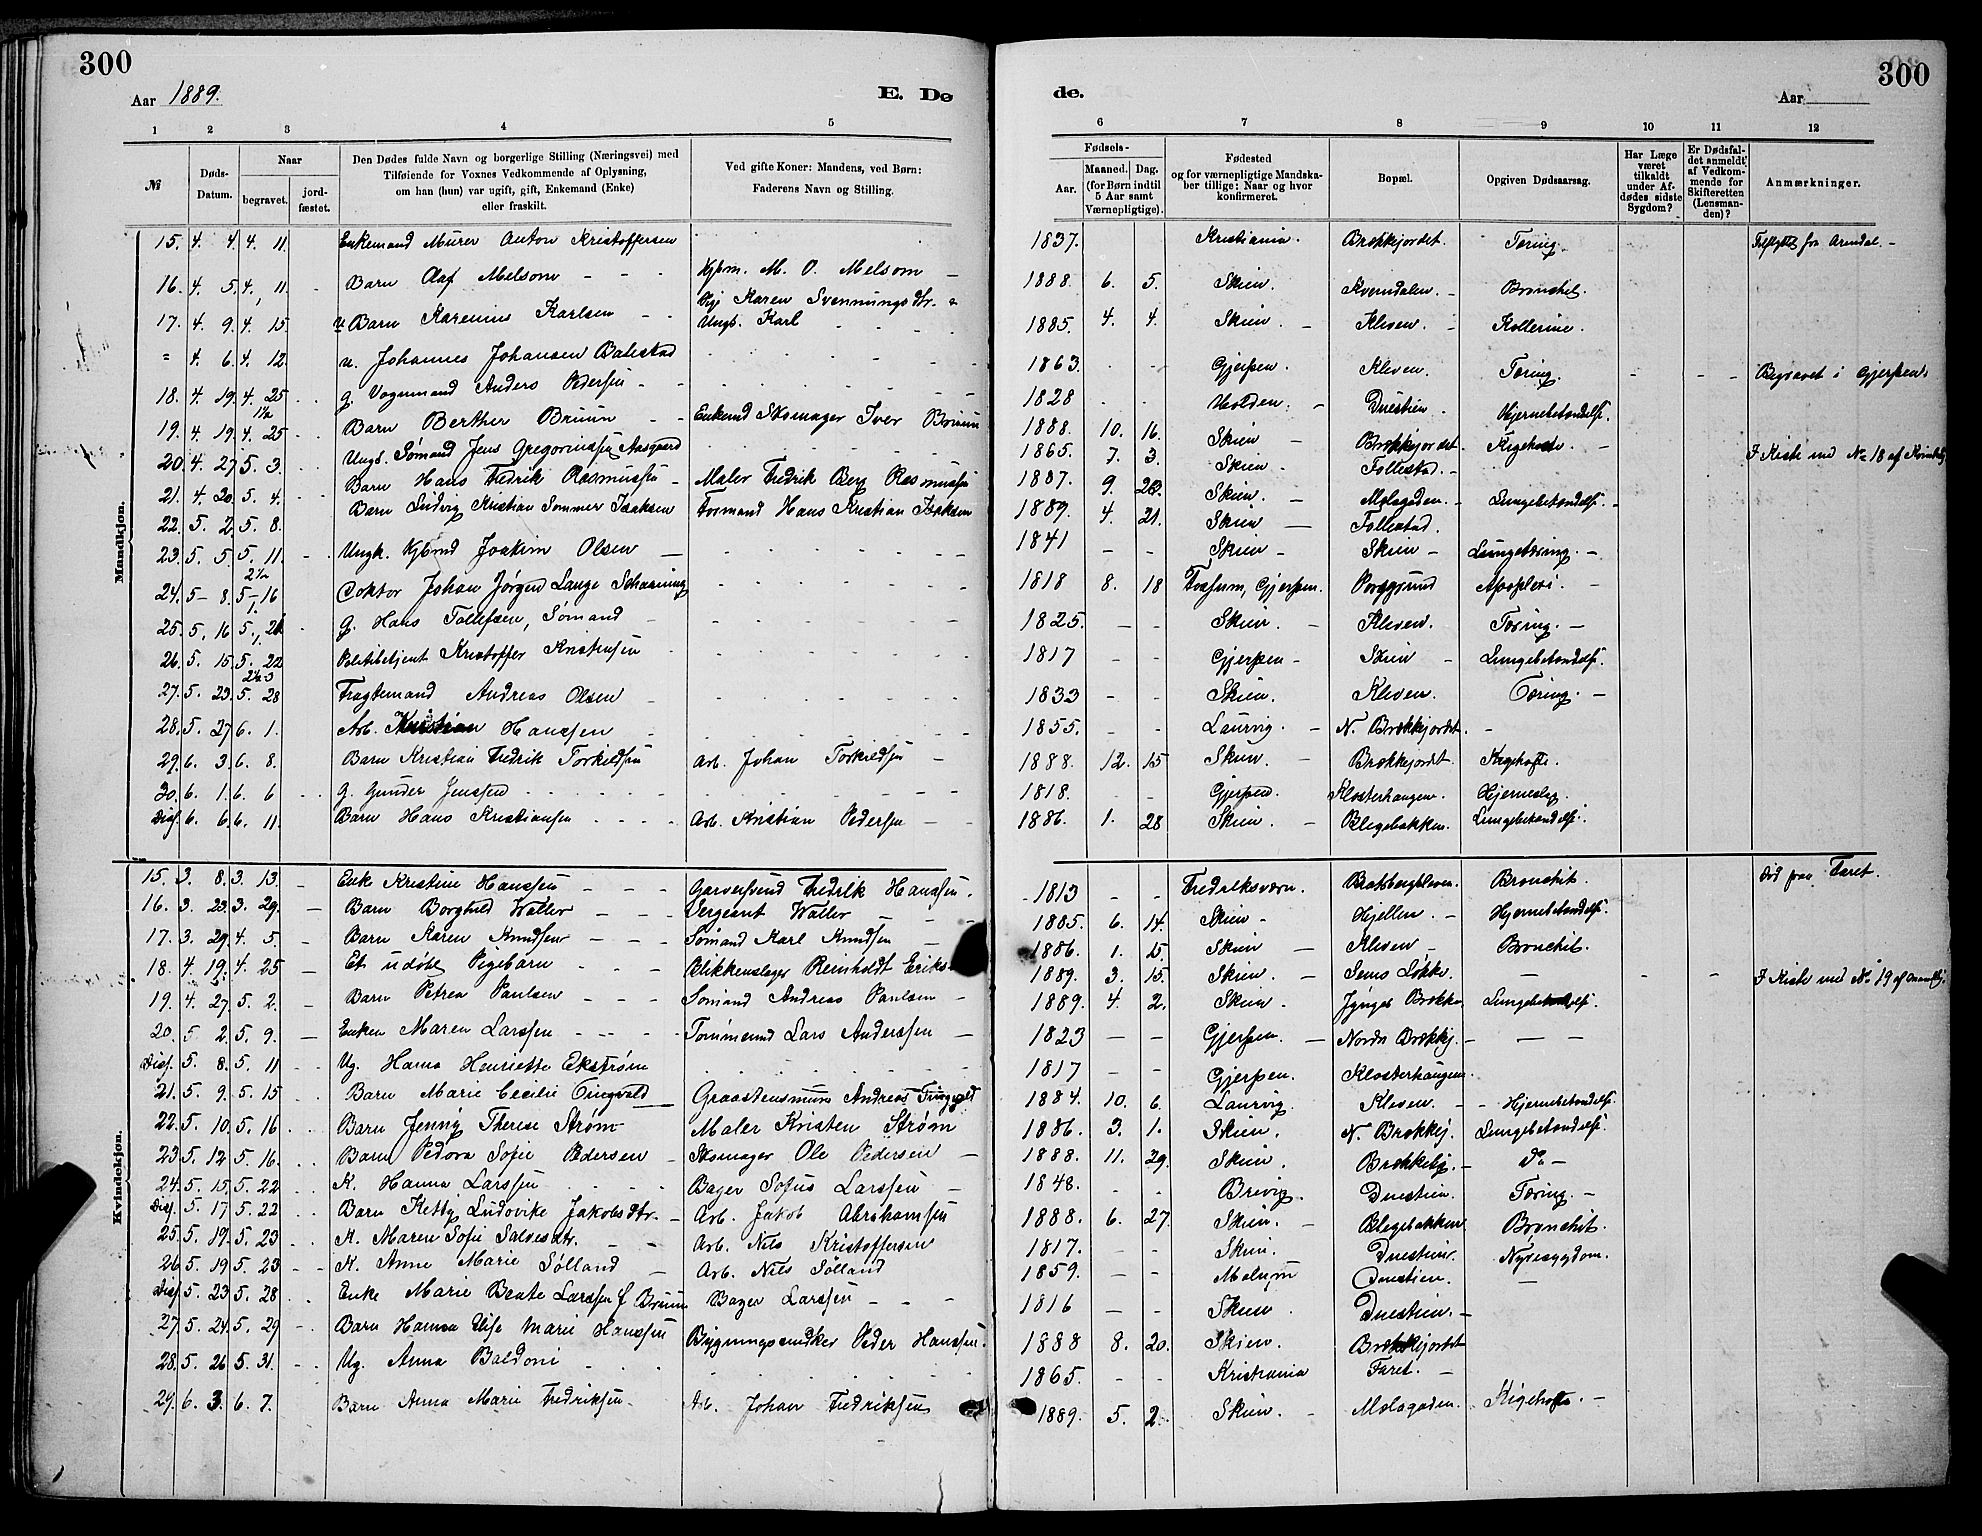 300
300
Aar 1889.
E. Dø
de.
Aar
1 2 3 4 5 6 7 8 9 10 11 12
№
Døds-Datum.
Naar
begravet.
jord-fæstet.
Den Dødes fulde Navn og borgerlige Stilling (Næringsvei) med
Tilføiende for Voxnes Vedkommende af Oplysning,
om han (hun) var ugift, gift, Enkemand (Enke)
eller fraskilt.
Ved gifte Koner: Mandens, ved Børn:
Faderens Navn og Stilling.
Fødsels-
Aar.
Maaned. Dag.
(for Børn indtil
5 Aar samt
Værnepligtige).
Fødested
og for værnepligtige Mandska-
ber tillige: Naar og hvor
konfirmeret.
Bopæl.
Opgiven Dødsaarsag.
Har Læge
været
tilkaldt
under Af-
dødes sidste
Sygdom?
Er Dødsfal-
det anmeldt
af Vedkom-
mende for
Skifteretten
(Lensman-
den)?
Anmærkninger.
Mandkjøn.
15. 4. 4. 4. 11. Enkemand Murer Anton Kristoffersen 1837. Kristiania. Brækkejordet. Tæring. Tilflyttet fra Arendal. –
16. 4. 5. 4. 11. Barn Olaf Melsom – – – Kjbm. M. O. Melsom – 1888. 6. 5. Skien. Kverndalen. – Bronchit.
17. 4. 9. 4. 15. u. Barn Karenius Karlsen – – Pige Karen Svennungsdtr. Ungk. Karl 1885. 4. 4. Skien. – Kleven. – Kollerine.
" 4. 6. 4. 12. u. Johannes Johansen Balestad 1863. Gjerpen. Kleven. Tæring. – – – Begravet i Gjerpen.
18. 4. 19. 4. 25 g. Vognmand Anders Pedersen – – 1828 Holden. – Duestien. Hjernebetændelse.
19. 4. 19. 4. 25. Barn Berther Bruun – Enkemd Skomager Iver Bruun 1888. 10. 16. Skien – Brækkejordet. Kighoste. – I Kiste med No 18 af Kvindekj.
20. 4. 27. 5. 3. Ungk. Sømand Jens Gregoriussen Aasgaard 1865. 7. 3. Skien. Follestad. –
21. 4. 20. 5. 4. Barn Hans Fredrik Rasmussen – Maler Fredrik Berg Rasmussen 1887. 9. 20. Skien. – Mølagaden. – Lungebetændelse. –
22. 5. 2. 5. 8. Barn Ludvig Kristian Sommer Isaksen Formand Hans Kristian Isaksen 1889. 4. 21. Skien – Follestad.
23. 5. 5. 5. 11. Ungk. Kjbmd Joakim Olsen – 1841 – – Skien – Skien – Lungetæring. –
24. 5 – 8. 5 – 16 Doktor Johan Jørgen Lange Schanning 1818 8. 18 Fossum, Gjerpen. Porsgrund Apoplexi –
25. 5. 16 5. 21 g. Hans Tollefsen, Sømand – 1825. – – Skien. – Kleven. Tæring. –
26. 5. 15. 5. 22 Politibetjent Kristoffer Kristensen 1817 – – Gjerpen – Skien – Lungebetændelse.
27. 5. 23. 5. 28 Fragtemand Andreas Olsen – 1833 – – Skien. Kleven. Tæring. –
28. 5. 27 6. 1. Arb. Kristian Hanssen – 1855. – – Laurvig. – N. Brækkejordet. –
29. 6. 3. 6. 8. Barn Kristian Fredrik Torkildsen Arb. Johan Torkildsen – 1888. 12. 15 Skien. – Brækkejordet. Kighoste.
30. 6. 1. 6. 6 g. Gunder Jenssen 1818. – Gjerpen. Klosterhaugen. Hjerneslag.
Diss. 6. 6. 6. 11. Barn Hans Kristiansen Arb. Kristian Pedersen – – 1886. 1. 28 Skien. – Blegebakken. Lungebetændelse.
Kvindekjøn.
15. 3. 8. 3. 13. – Enke Kristine Hanssen – – – Garversvend Fredrik Hanssen. 1813 – – Fredriksværn. Bratsbergkleven. Bronchit. Død paa Faret.
16. 3. 23. 3. 29. – Barn Borghild Wåller – – – Sergeant Wåller – – – 1885. 6. 14. Skien – Hjellen. – Hjernebetændelse.
17. 3. 29. 4. 5. – Barn Karen Knudsen – – – Sømand Karl Knudsen – 1886. 1. 15. Skien – Kleven – Bronchit.
18. 4. 19. 4. 25 – Et udøbt Pigebarn – – Blikkenslager Reinholdt Eriks 1889. 3. 15. Skien. – Sems Løkke. – – – I Kiste med No 19 af Mandkj.
19. 4. 27. 5. 2. – Barn Petrea Paulsen – – Sømand Andreas Paulsen – 1889. 4. 2. Skien. Brække Lungebetændelse.
20. 5. 2 5. 9. – Enken Maren Larssen – – – – Tømmermd Lars Anderssen – 1823 – – Gjerpen. – Nordre Brækkej. – – –
Diss. 5. 8. 5. 11 Ug. Hanna Henriette Ekstrøm 1817 – – Gjerpen. Klosterhaugen.
21. 5. 9. 5. 15 Barn Marie Cecilie Tingvold Graastensmurer Andreas Tingvold 1884. 10. 6. Laurvig. Kleven. – – Hjernebetændelse.
22. 5. 10. 5. 16. Barn Jenny Therese Strøm Maler Kristen Strøm 1886. 3. 1. Skien. N. Brækkej. Lungebetændelse.
23 5. 12 5. 16. Barn Pedora Sofie Pedersen – Skomager Ole Pedersen – 1888. 11. 29. Skien. Brækkebg. – Do –
24. 5. 15. 5. 22 K. Hanna Larssen Bager Sofus Larssen – 1848. – – Brevig. Duestien. Tæring. –
Diss. 5. 17 5. 22. Barn Ketty Ludovike Jakobsdtr. – Arb. Jakob Abrahamsen 1888. 6. 27. Skien. – Blegebakken Bronchit.
25. 5. 19. 5. 23 K. Maren Sofie Salvesdtr. Arb. Nils Kristoffersen 1817. – – Skien. Duestien. Nyresygdom.
26 5. 19 5. 23 – – K. Anne Marie Sølland – Arb. Nils Sølland 1859. – – Melum Duestien. –
Diss. 5. 23 5. 28 Enke Marie Beate Larssen f. Bruun Bager Larssen – – – 1816 – – Skien. Duestien. –
27. 5. 24. 5. 29 Barn Hanna Elise Marie Hanssen Bygningssnedker Peder Hanssen. 1888 8. 20. Skien. Brækkejordet
28. 5. 26 5. 31. Ug. Anna Baldoni 1865. – – Kristiania Faret. –
29. 6. 3. 6. 7. Barn Anna Marie Fredriksen. Arb. Johan Fredriksen 1889. 5. 2. Skien. – Mølagaden. Kighoste. –